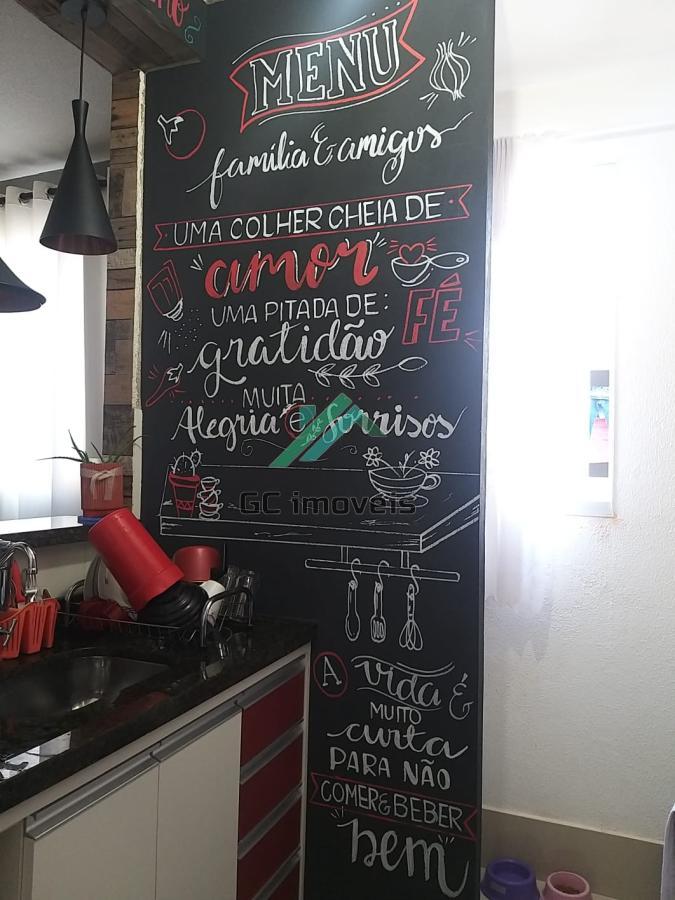 MENU
família & amigos
UMA COLHER CHEIA DE
amor
UMA PITADA DE:
FÉ
gratidão
MUITA
Alegria e Sorrisos
GC imoveis
A vida é
MUITO
curta
PARA NÃO
COMER & BEBER
bem